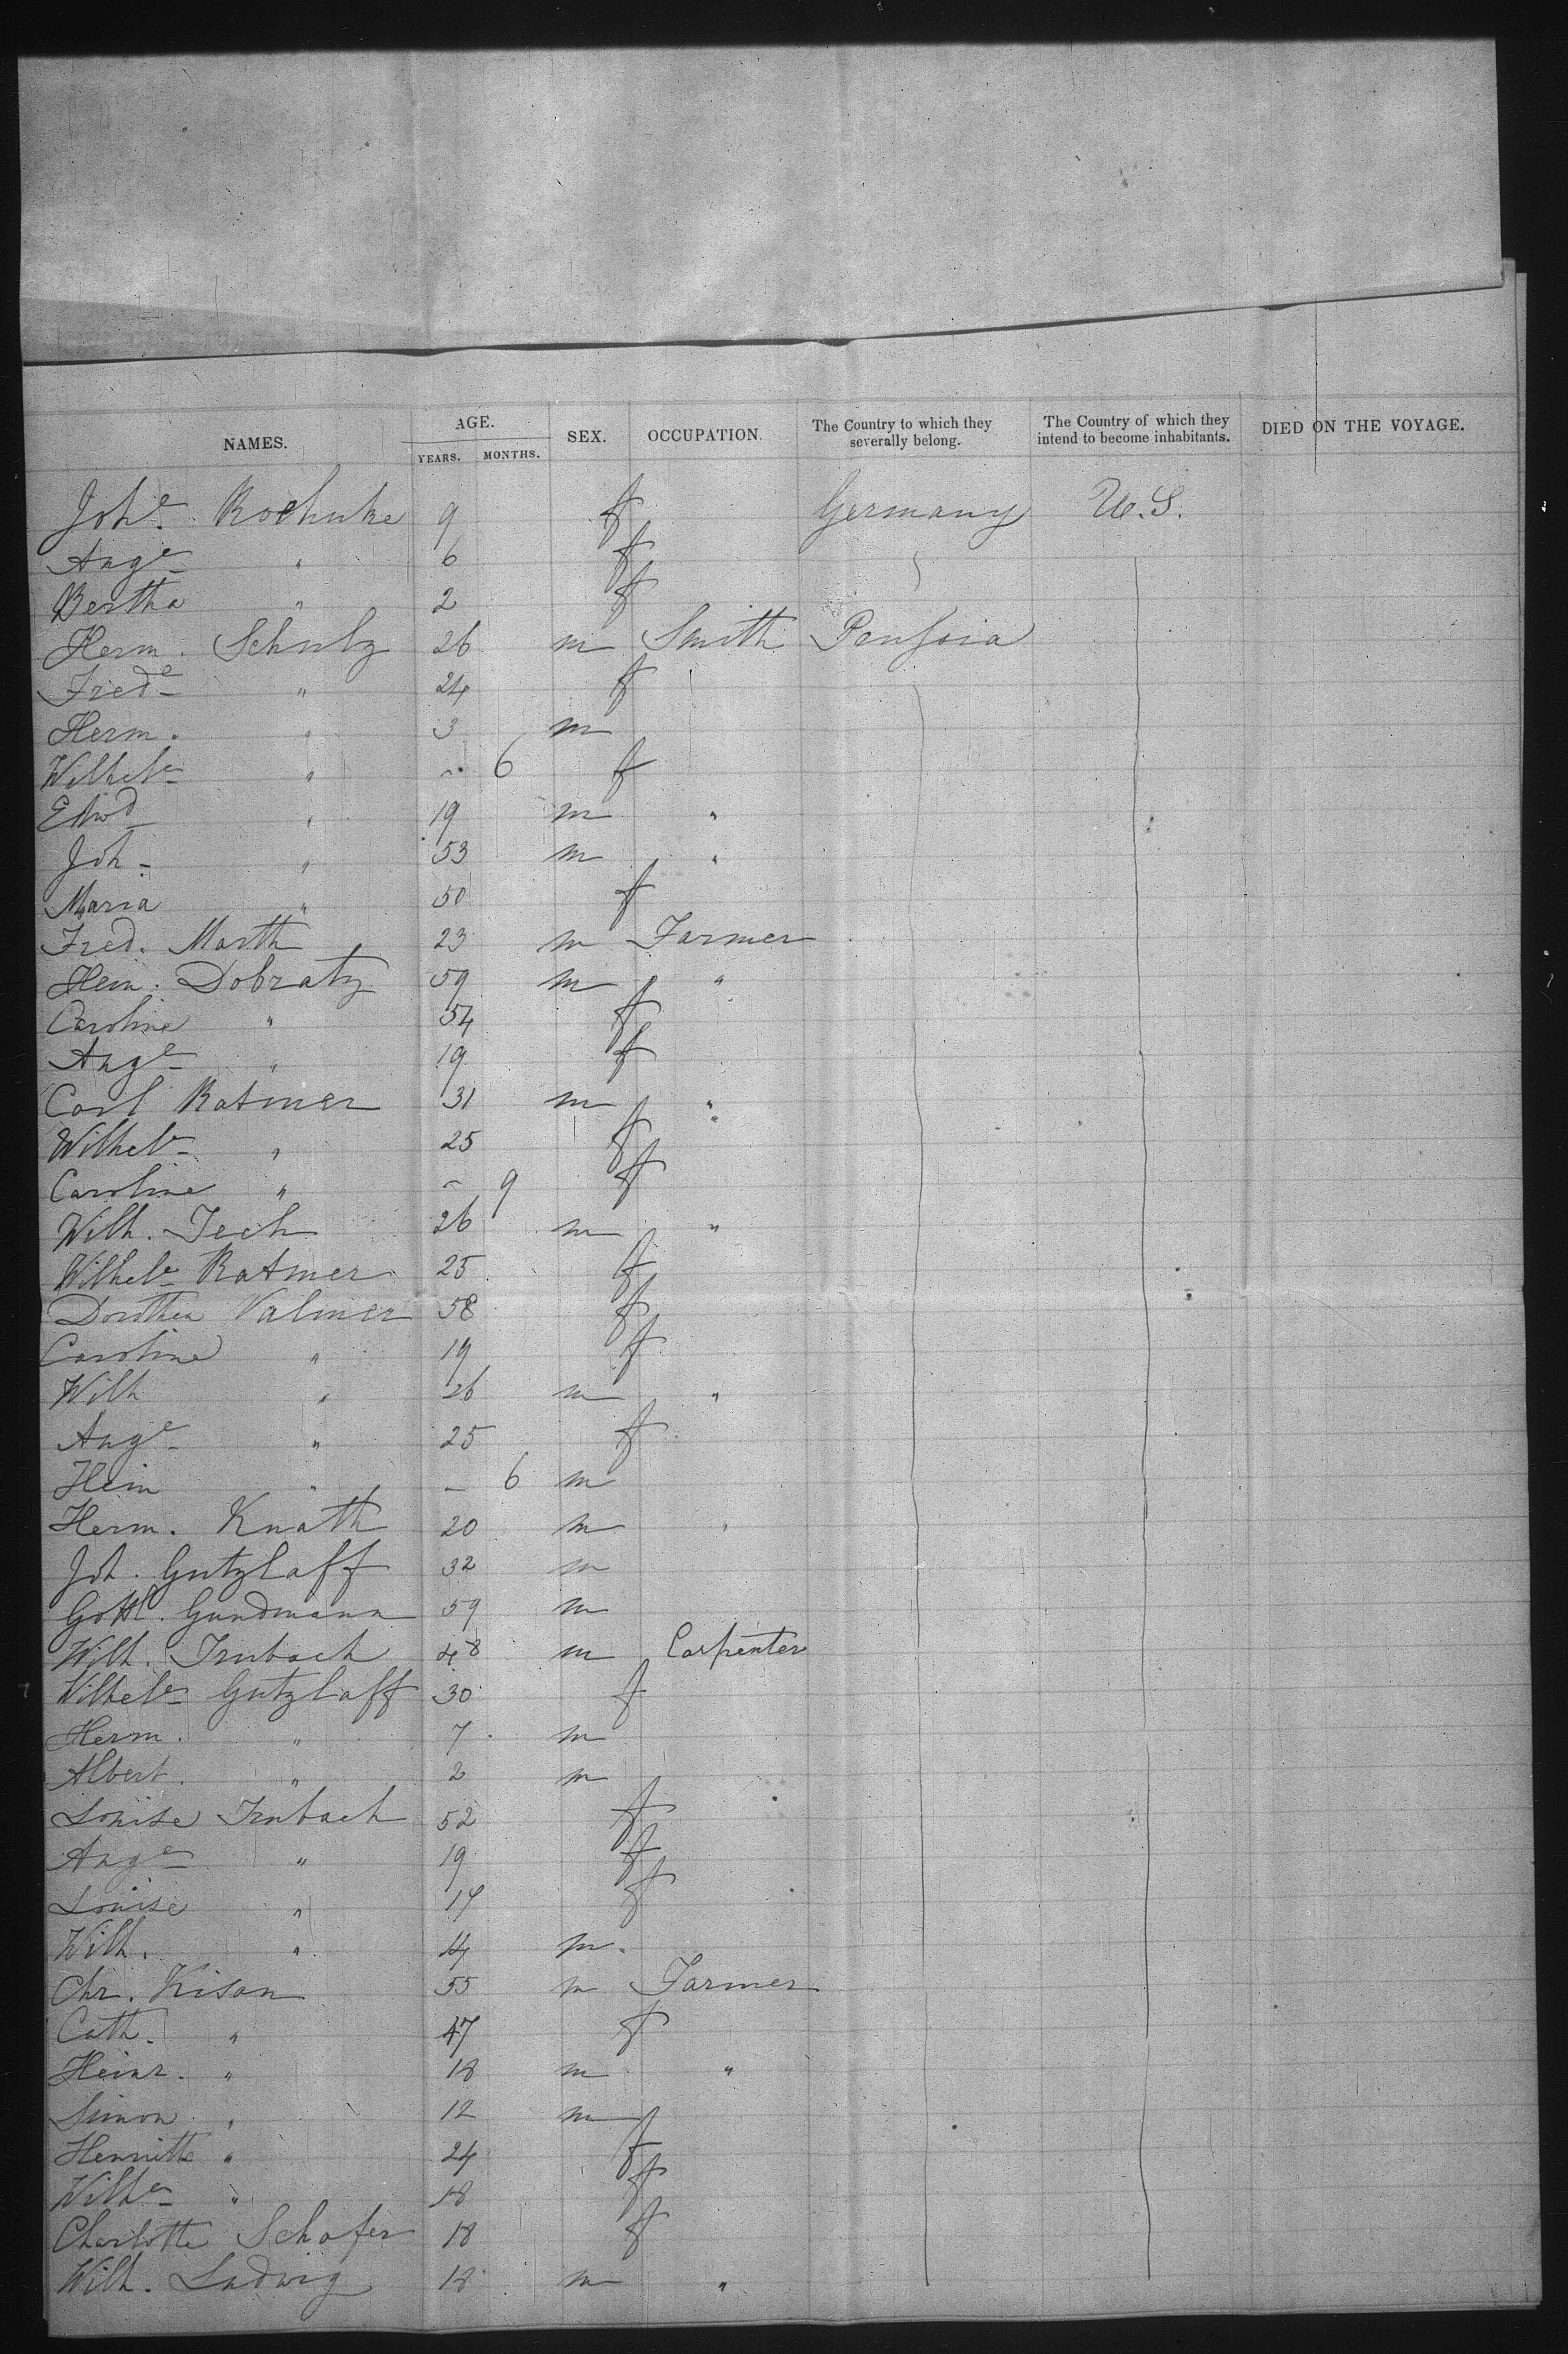 NAMES. AGE. SEX. OCCUPATION. The Country to which they severally belong. The Country of which they intend to become inhabitants. DIED ON THE VOYAGE.
YEARS. MONTHS.
Johe. Roehnke 9 f Germany U.S.
Auge " 6 f
Bertha " 2 f
Herm. Schulz 26 m Smith
Frede " 24 f
Herm. " 3 m
Wilhele " - 6 f
Edwd " 19 m "
Joh. " 53 m "
Maria " 50 f
Fred. Marth 23 m Farmer
Hein. Dobratz 59 m "
Caroline " 54 f
Auge " 19 f
Carl Ratmer 31 m "
Wilhele " 25 f
Caroline " - 9 f
Wilh. Tech 26 m "
Wilhele Ratmer 25 f
Dorothea Valmer 58 f
Caroline " 19 f
Wilh " 26 m "
Auge " 25 f
Hein " - 6 m
Herm. Knath 20 m "
Joh. Gutzlaff 32 m
Gottl. Gundmann 59 m
Wilh. Irnbach 48 m Carpenter
Wilhele Gutzlaff 30 f
Herm. " 7 m
Albert. " 2 m
Louise Irnbach 52 f
Auge " 19 f
Louise " 17 f
Wilh. " 14 m.
Chr. Kison 55 m Farmer
Cath. " 47 f
Heinr. " 18 m "
Simon " 12 m
Henriette " 24 f
Wilhe " 18 f
Charlotte Schafer 18 f
Wilh. Ludwig 18 m "